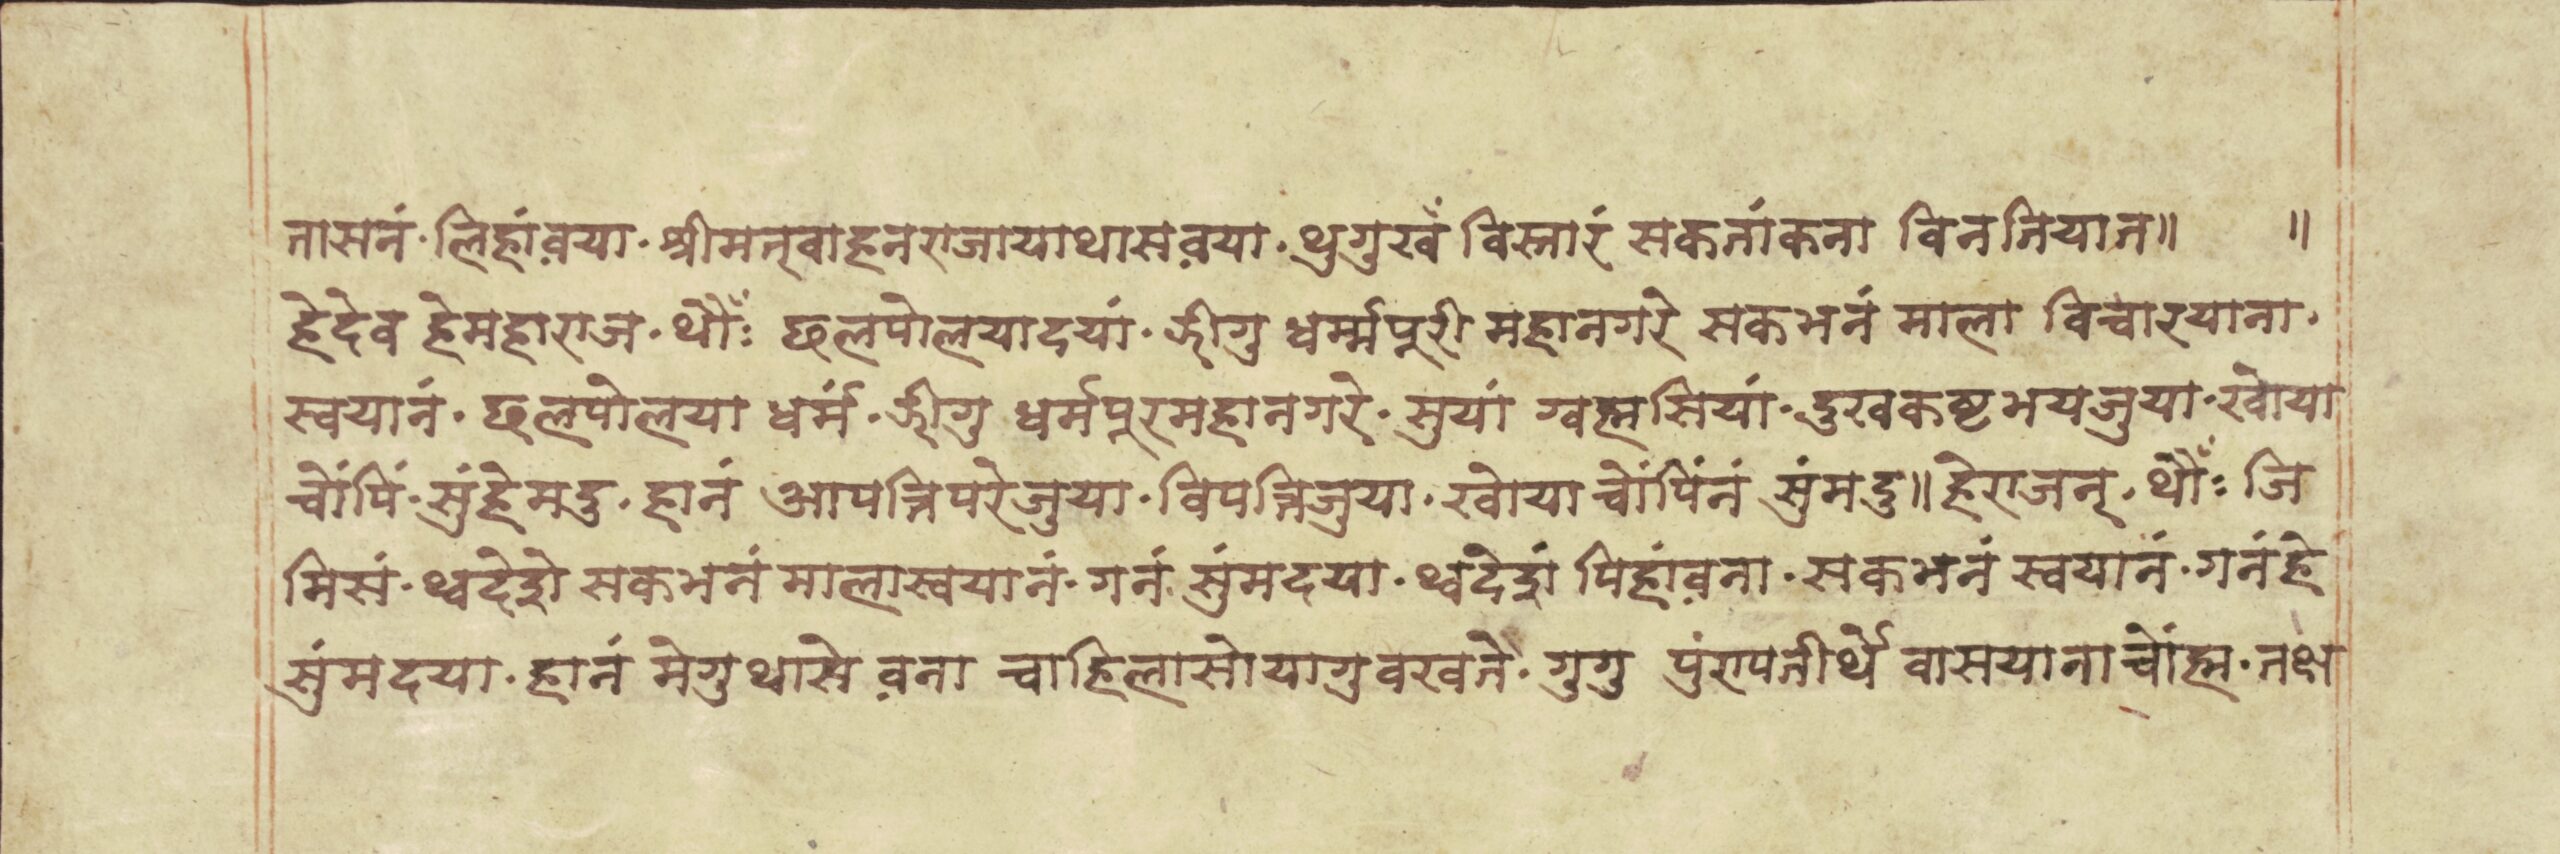 तासनं · लिहां व़या · श्रीमत् वाहनराजायाथास व़या · थुगुखँ विस्तारं सकतांकना विनतियात॥ ॥
हेदेव हेमहाराज · थौँः छलपोलयादयां · ज़ीगु धर्म्मपूरी महानगरे सकभनं माला विचारयाना ·
स्वयानं · छलपोलया धर्मं · ज़ीगु धर्मपूरमहानगरे · सुयां ग्वह्मसियां · दुखकष्टभयजुया · खोया
चोंपिं · सुंहेमदु · हानं आपत्तिपरेजुया · विपत्तिजुया · खोयाचोंपिंनं सुंमदु॥ हेराजन् · थौँः जि
मिसं · थ्वदेशे सकभनं मालास्वयानं · गनं सुंमदया · थ्वदेशं पिहांव़ना · सकभनं स्वयानं · गनंहे
सुंमदया · हानं मेगुथासे व़ना चाहिलासोयागुवखते · गुगु पुंरापतीर्थे वासयानाचोंह्म · तक्ष